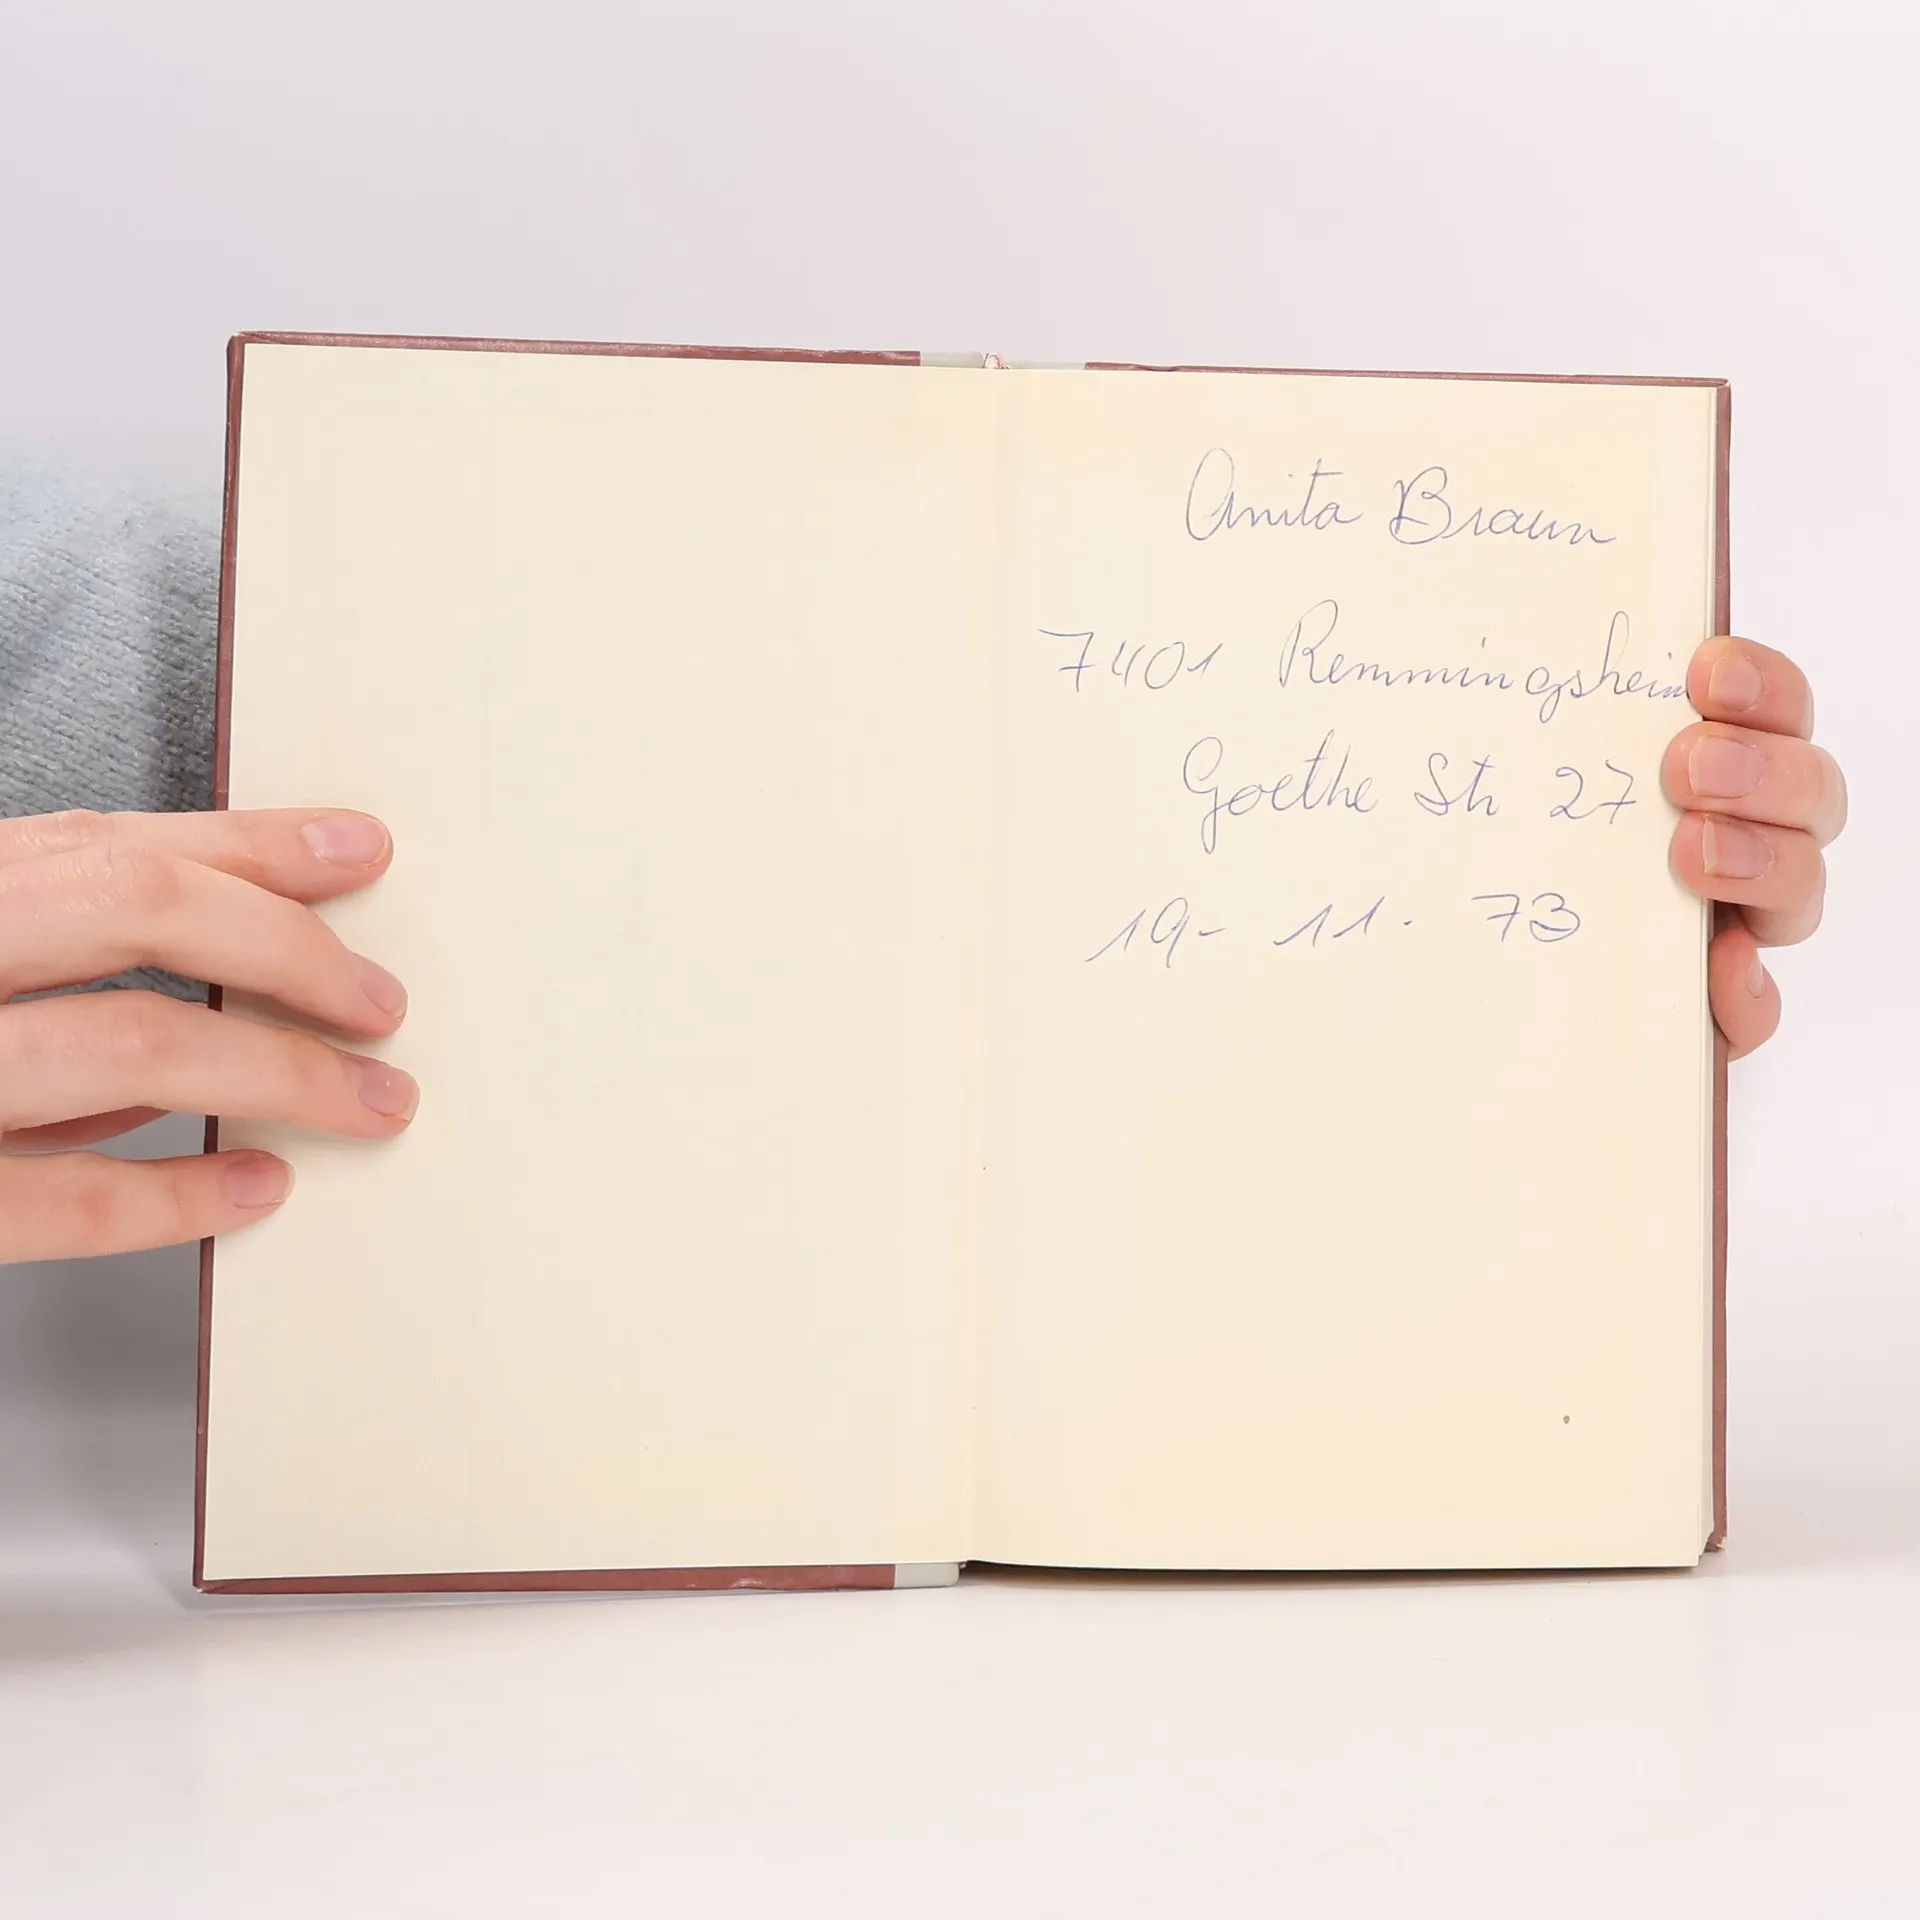 Anita Braun
7401 Remmingsheim
Goethe Str 27
19- 11. 73